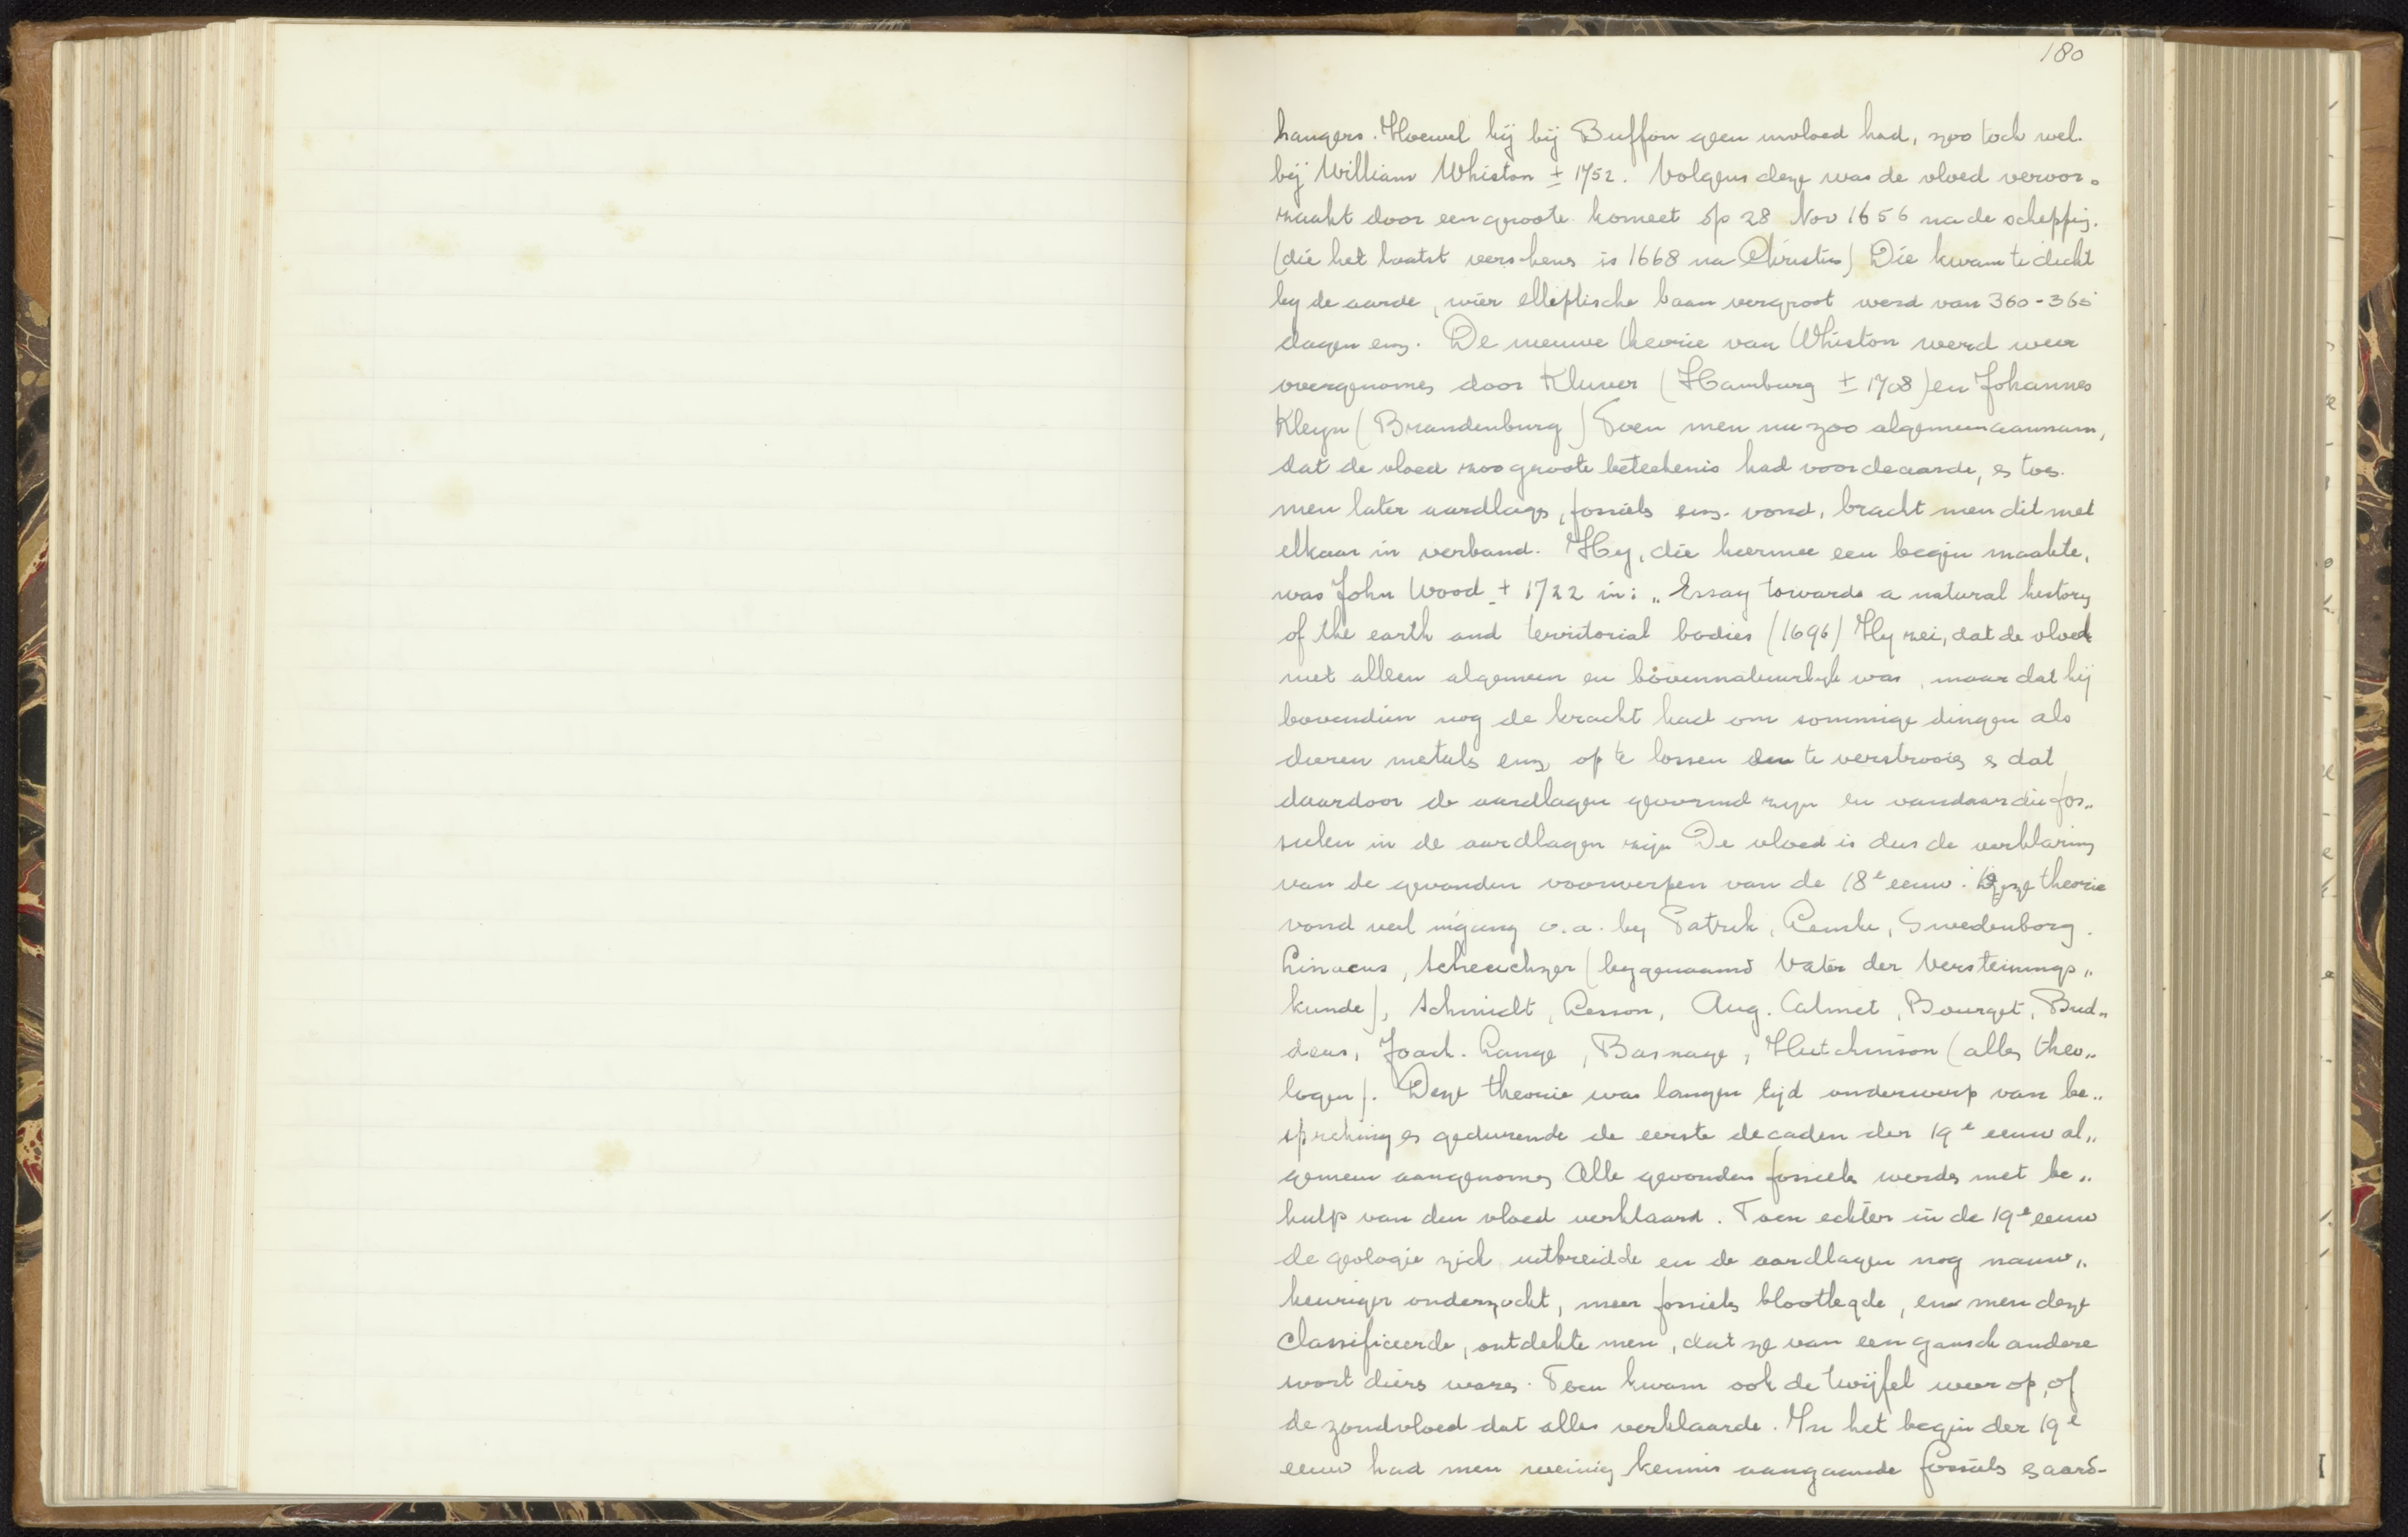 180
hangers. Hoewel hij bij Buffon geen invloed had, zoo toch wel
bij William Whiston ± 1752. Volgens deze was de vloed veroor„
zaakt door een groote komeet op 28 Nov 1656 na de schepping.
(die het laatst verschenen is 1668 na Christus) Die kwam te dicht
by de aarde, wier elleptische baan vergroot werd van 360-365
dagen enz. De nieuwe theorie van Whiston werd weer
overgenomen door Kluver (Hamburg ± 1708) en Johannes
Kleyn (Brandenburg) Toen men nu zoo algemeen aannam,
dat de vloed zoo groote beteekenis had voor de aarde, en toen
men later aardlagen, fossiels enz. vond, bracht men dit met
elkaar in verband. Hy, die hiermee een begin maakte,
was John Wood ± 1722 in: „Essay towards a natural history
of the earth and territorial bodies (1696) Hy zei, dat de vloed
niet alleen algemeen en bovennatuurlyk was, maar dat hij
bovendien nog de kracht had om sommige dingen als
dieren metals enz op te lossen en te verstrooien en dat
daardoor de aardlagen gevormd zyn en vandaar die fos„
sielen in de aardlagen zijn De vloed is dus de verklaring
van de gevonden voorwerpen van de 18e eeuw. Deze theorie
vond veel ingang o.a. by Patrik, Swedenborg.
Linaeus, Scheuchzer (bygenaamd Vater der Versteinungs„
kunde), Schmidt, Lesson, Aug. Calmet, Bourget, Bud„
deus, Joach. Lange, Basnage, Hutchinson (allen theo„
logen). Deze theorie was langen tijd onderwerp van be„
spreking en gedurende de eerste decaden der 19e eeuw al„
gemeen aangenomen Alle gevonden fossiels werden met be„
hulp van den vloed verklaard. Toen echter in de 19e eeuw
de geologie zich uitbreidde en de aardlagen nog nauw„
keuriger onderzocht, meer fossiels blootlegde, en men deze
classificeerde, ontdekte men, dat ze van een gansch andere
soort diers waren. Toen kwam ook de twijfel weer op, of
de zondvloed dat alles verklaarde. In het begin der 19e
eeuw had men weinig kennis aangaande fossiels en aard-